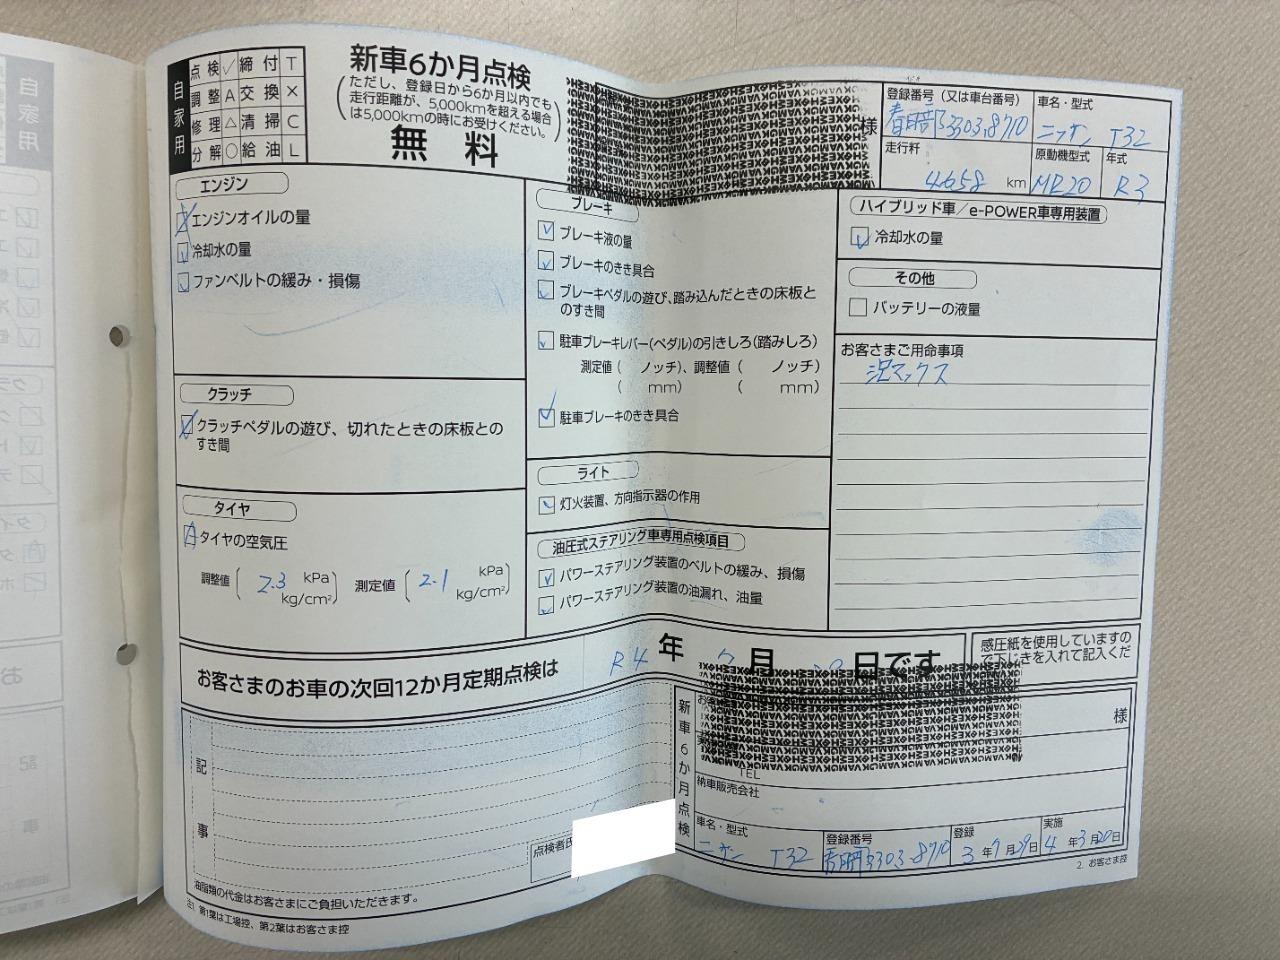 自家用
点検 ✓ 締付 T
調整 A 交換 ×
修理 △ 清掃 C
分解 ○ 給油 L
新車6か月点検
(ただし、登録日から6か月以内でも
走行距離が、5,000kmを超える場合
は5,000kmの時にお受けください。)
無料
様
登録番号(又は車台番号)
春日部 303 8710
車名・型式
ニッサン T32
走行粁
4658 km
原動機型式
MR20
年式
R3
エンジン
エンジンオイルの量
冷却水の量
ファンベルトの緩み・損傷
クラッチ
クラッチペダルの遊び、切れたときの床板との
すき間
タイヤ
タイヤの空気圧
調整値 ( 2.3 kPa kg/cm² ) 測定値 ( 2.1 kPa kg/cm² )
ブレーキ
ブレーキ液の量
ブレーキのきき具合
ブレーキペダルの遊び、踏み込んだときの床板と
のすき間
駐車ブレーキレバー(ペダル)の引きしろ(踏みしろ)
測定値( ノッチ)、調整値( ノッチ)
( mm) ( mm)
駐車ブレーキのきき具合
ライト
灯火装置、方向指示器の作用
油圧式ステアリング車専用点検項目
パワーステアリング装置のベルトの緩み、損傷
パワーステアリング装置の油漏れ、油量
ハイブリッド車/e-POWER車専用装置
冷却水の量
その他
バッテリーの液量
お客さまご用命事項
マックス
お客さまのお車の次回12か月定期点検は R4 年 月 日です
感圧紙を使用していますの
で下じきを入れて記入くだ
記事
点検者氏
新車6か月点検
様
TEL
納車販売会社
車名・型式
ニッサン T32
登録番号
春日部 303 8710
登録
3年7月29日
実施
4年3月20日
油脂類の代金はお客さまにご負担いただきます。
注1. 第1葉は工場控、第2葉はお客さま控
2. お客さま控